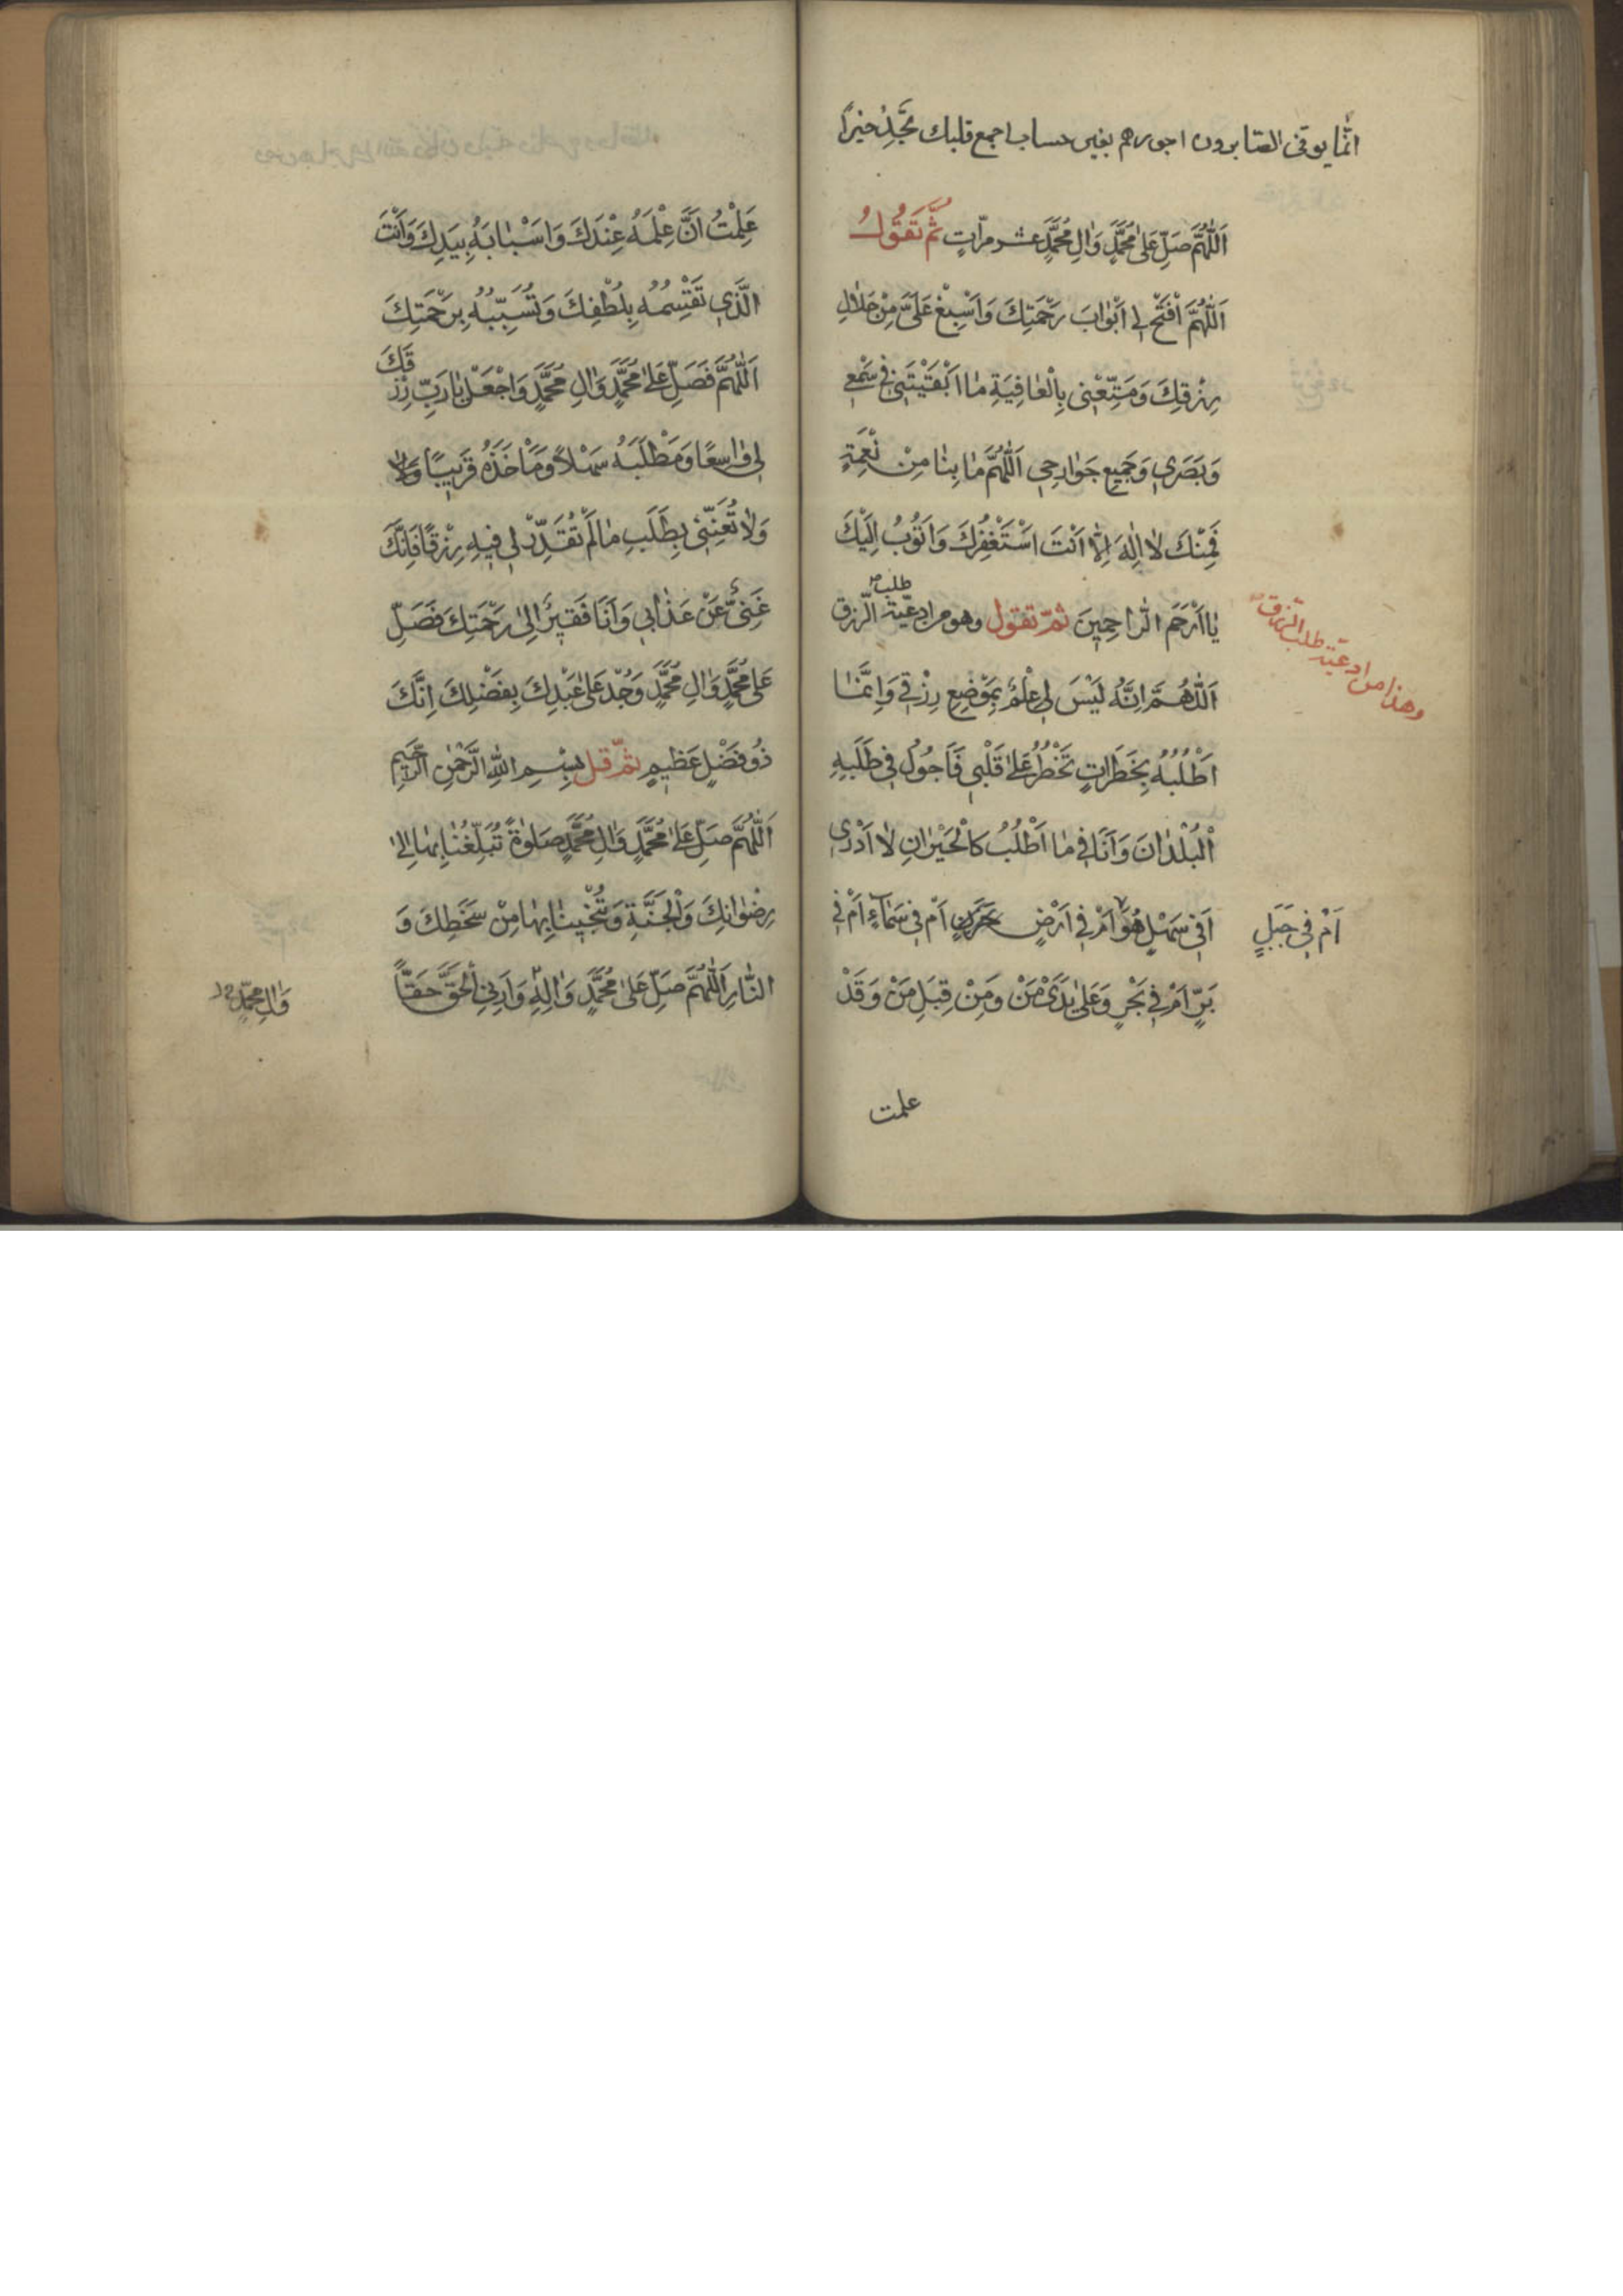 انّما یوفّی الصّابرون اجورهم بغیر حساب اجمع قلبك تَجِدْ خیراً
اَللّٰهُمَّ صَلِّ عَلیٰ مُحَمَّدٍ وَاٰلِ مُحَمَّدٍ عشر مرّاتٍ ثُمَّ تَقُولُ
اَللّٰهُمَّ افْتَحْ لِی اَبْوٰابَ رَحْمَتِكَ وَاَسْبِغْ عَلَیَّ مِنْ حَلٰالِ
رِزْقِكَ وَمَتِّعْنِی بِالْعٰافِیَةِ مٰا اَبْقَیْتَنِی فِی سَمْعِی
وَبَصَرِی وَجَمِیعِ جَوٰارِحِی اَللّٰهُمَّ مٰا بِنٰا مِنْ نِعْمَةٍ
فَمِنْكَ لٰا اِلٰهَ اِلّٰا اَنْتَ اَسْتَغْفِرُكَ وَاَتُوبُ اِلَیْكَ
یٰا اَرْحَمَ الرّٰاحِمِینَ ثمّ تقول وهو من ادعیّة طلب الرّزق
وهذا من ادعیّة طلب الرّزق
اَللّٰهُمَّ اِنَّهُ لَیْسَ لِی عِلْمٌ بِمَوْضِعِ رِزْقِی وَاِنَّمٰا
اَطْلُبُهُ بِخَطَرٰاتٍ تَخْطُرُ عَلیٰ قَلْبِی فَاَجُولُ فِی طَلَبِهِ
الْبُلْدٰانَ وَاَنَا فِی مٰا اَطْلُبُ كَالْحَیْرٰانِ لٰا اَدْرِی
اَفِی سَهْلٍ هُوَ اَمْ فِی اَرْضٍ اَمْ فِی سَمٰآءٍ اَمْ فِی
اَمْ فِی جَبَلٍ
بَرٍّ اَمْ فِی بَحْرٍ وَعَلیٰ یَدَیْ مَنْ وَمِنْ قِبَلِ مَنْ وَقَدْ
علمت
عَلِمْتُ اَنَّ عِلْمَهُ عِنْدَكَ وَاَسْبٰابَهُ بِیَدِكَ وَاَنْتَ
الَّذِی تَقْسِمُهُ بِلُطْفِكَ وَتُسَبِّبُهُ بِرَحْمَتِكَ
اَللّٰهُمَّ فَصَلِّ عَلیٰ مُحَمَّدٍ وَاٰلِ مُحَمَّدٍ وَاجْعَلْ یٰا رَبِّ رِزْقَكَ
لِی وٰاسِعًا وَمَطْلَبَهُ سَهْلاً وَمَأْخَذَهُ قَرِیبًا وَلٰا
وَلٰا تُعَنِّنِی بِطَلَبِ مٰا لَمْ تُقَدِّرْ لِی فِیهِ رِزْقًا فَاِنَّكَ
غَنِیٌّ عَنْ عَذٰابِی وَاَنَا فَقِیرٌ اِلیٰ رَحْمَتِكَ فَصَلِّ
عَلیٰ مُحَمَّدٍ وَاٰلِ مُحَمَّدٍ وَجُدْ عَلیٰ عَبْدِكَ بِفَضْلِكَ اِنَّكَ
ذُو فَضْلٍ عَظِیمٍ ثمّ قل بِسْمِ اللّٰهِ الرَّحْمٰنِ الرَّحِیمِ
اَللّٰهُمَّ صَلِّ عَلیٰ مُحَمَّدٍ وَاٰلِ مُحَمَّدٍ صَلٰوةً تُبَلِّغُنٰا بِهٰا اِلیٰ
رِضْوٰانِكَ وَالْجَنَّةِ وَتُنْجِینٰا بِهٰا مِنْ سَخَطِكَ وَ
النّٰارِ اَللّٰهُمَّ صَلِّ عَلیٰ مُحَمَّدٍ وَاٰلِهِ وَاَرِنِی الْحَقَّ حَقّاً
وَاٰلِ مُحَمَّدٍ